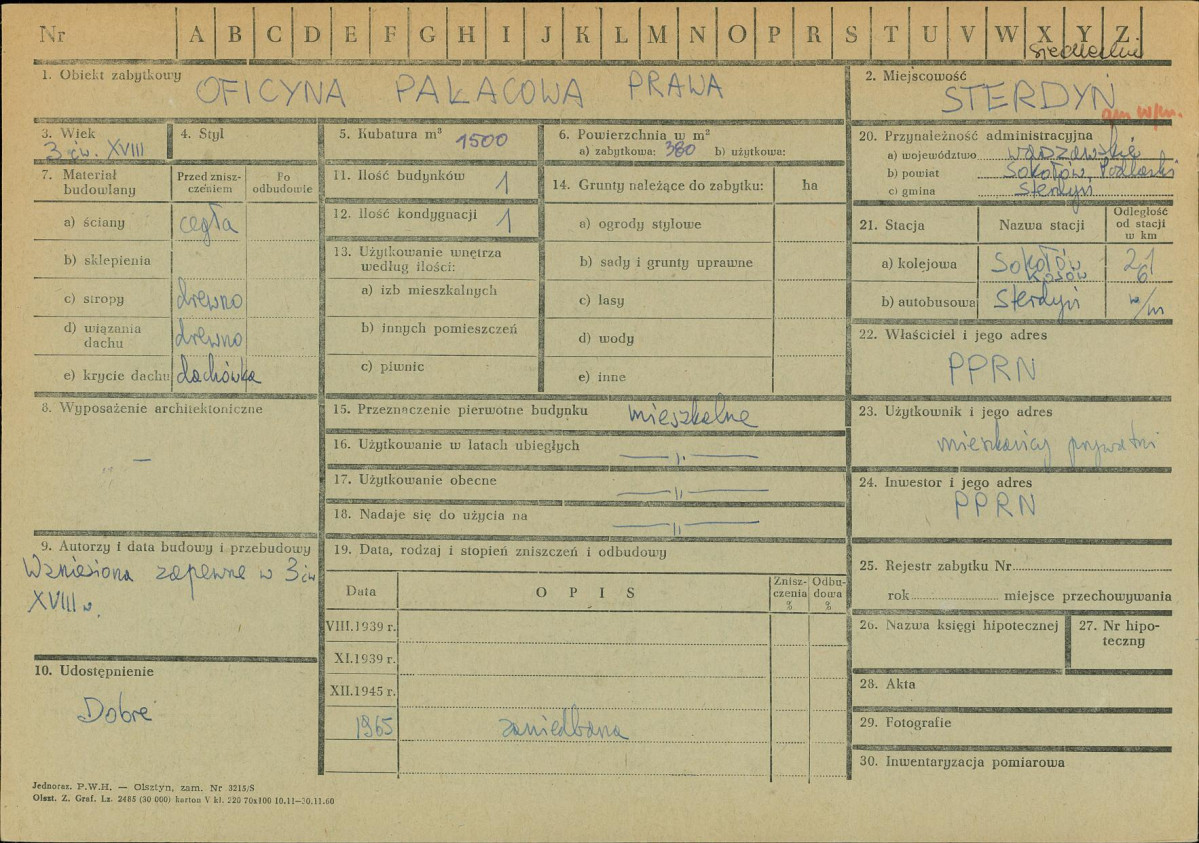 Nr A B C D E F G H I J K L M N O P R S T U V W X Y Z
siedleckie
1. Obiekt zabytkowy OFICYNA PAŁACOWA PRAWA
2. Miejscowość STERDYŃ
gm w/m.
3. Wiek 3 ćw. XVIII
4. Styl
5. Kubatura m³ 1500
6. Powierzchnia w m²
a) zabytkowa: 380 b) użytkowa:
7. Materiał budowlany
Przed zniszczeniem
Po odbudowie
a) ściany cegła
b) sklepienia
c) stropy drewno
d) wiązania dachu drewno
e) krycie dachu dachówka
8. Wyposażenie architektoniczne
—
9. Autorzy i data budowy i przebudowy
Wzniesiona zapewne w 3 ćw
XVIII w.
10. Udostępnienie
Dobre
11. Ilość budynków 1
12. Ilość kondygnacji 1
13. Użytkowanie wnętrza
według ilości:
a) izb mieszkalnych
b) innych pomieszczeń
c) piwnic
14. Grunty należące do zabytku: ha
a) ogrody stylowe
b) sady i grunty uprawne
c) lasy
d) wody
e) inne
15. Przeznaczenie pierwotne budynku mieszkalne
16. Użytkowanie w latach ubiegłych —„—
17. Użytkowanie obecne —„—
18. Nadaje się do użycia na —„—
19. Data, rodzaj i stopień zniszczeń i odbudowy
Data OPIS Zniszczenia % Odbudowa %
VIII.1939 r.
XI.1939 r.
XII.1945 r.
1965 zaniedbana
20. Przynależność administracyjna
a) województwo warszawskie
b) powiat Sokołów Podlaski
c) gmina Sterdyń
21. Stacja Nazwa stacji Odległość od stacji w km
a) kolejowa Sokołów 21
Kosów 6
b) autobusowa Sterdyń w/m
22. Właściciel i jego adres
PPRN
23. Użytkownik i jego adres
mieszkańcy prywatni
24. Inwestor i jego adres
PPRN
25. Rejestr zabytku Nr
rok miejsce przechowywania
26. Nazwa księgi hipotecznej
27. Nr hipoteczny
28. Akta
29. Fotografie
30. Inwentaryzacja pomiarowa
Jednoraz. P.W.H. — Olsztyn, zam. Nr 3215/S
Olszt. Z. Graf. Lz. 2485 (30 000) karton V kl. 220 70x100 10.11—30.11.60